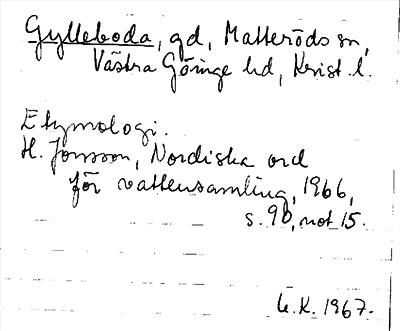 Gylleboda, gd, Matteröds sn,
Västra Göinge hd, Krist. l.
Etymologi.
H. Jonsson, Nordiska ord
för vattensamling, 1966,
s. 90, not 15.
U.K. 1967.